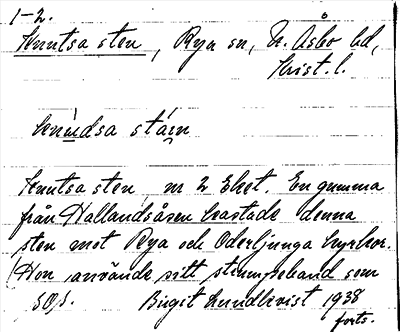 1-2.
Knutsa sten, Rya sn, N. Åsbo hd,
Krist. l.
knúdsa stáin
Knutsa sten, nr 2 Ehet. En gumma
från Hallandsåsen kastade denna
sten mot Rya och Oderljunga kyrkor.
(Hon använde sitt strumpeband som
Birgit Lundkvist 1938
forts.